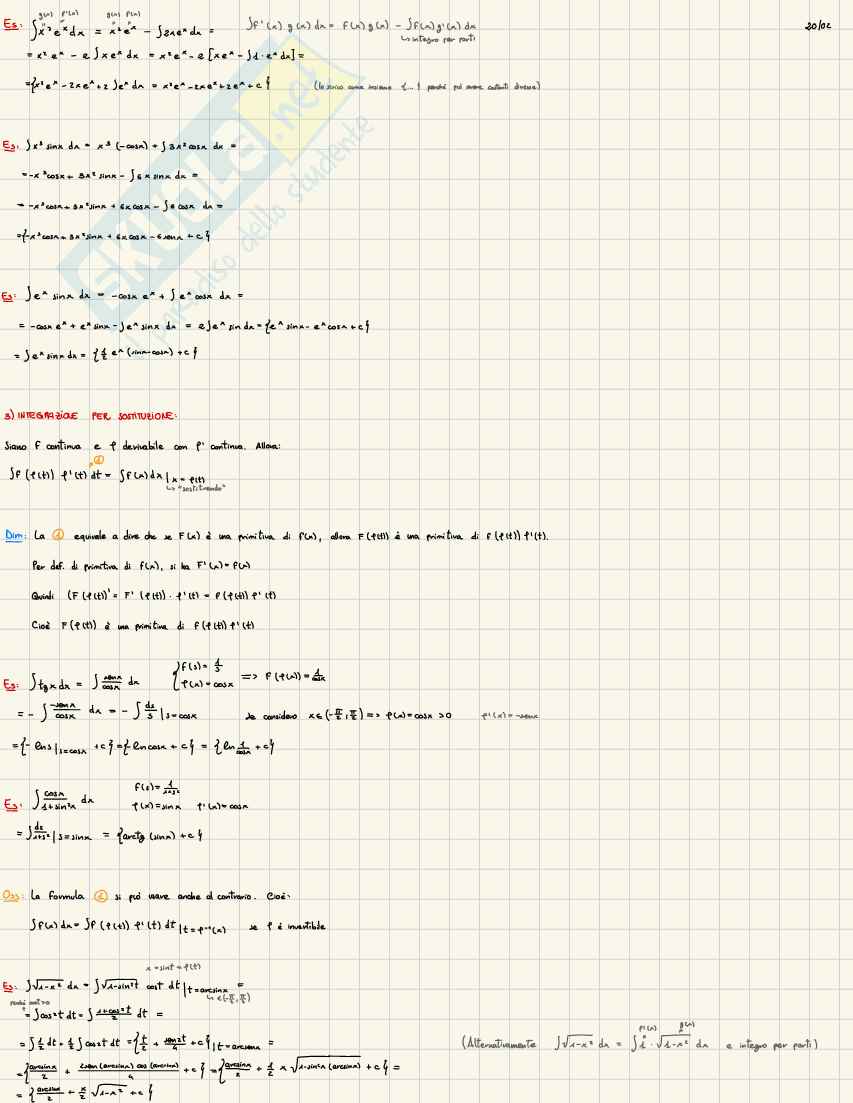 g(x) f'(x) g(x) f'(x)
Es: ∫x² eˣ dx = x² eˣ - ∫2x eˣ dx = ∫f'(x) g(x) dx = f(x) g(x) - ∫f(x) g'(x) dx 20/02
↳ integro per parti
= x² eˣ - 2 ∫x eˣ dx = x² eˣ - 2 [x eˣ - ∫1·eˣ dx] =
= {x² eˣ - 2x eˣ + 2 ∫eˣ dx = x² eˣ - 2x eˣ + 2eˣ + c} (lo scrivo come insieme {...} perché può avere costanti diverse)
Es: ∫x³ sinx dx = x³ (-cosx) + ∫3x² cosx dx =
= -x³ cosx + 3x² sinx - ∫6x sinx dx =
= -x³ cosx + 3x² sinx + 6x cosx - ∫6 cosx dx =
= {-x³ cosx + 3x² sinx + 6x cosx - 6 senx + c}
Es: ∫eˣ sinx dx = -cosx eˣ + ∫eˣ cosx dx =
= -cosx eˣ + eˣ sinx - ∫eˣ sinx dx = 2∫eˣ sin dx = {eˣ sinx - eˣ cosx + c}
= ∫eˣ sinx dx = {1/2 eˣ (sinx-cosx) + c}
3) INTEGRAZIONE PER SOSTITUZIONE:
Siano f continua e φ derivabile con φ' continua. Allora:
①
∫f (φ(t)) φ'(t) dt = ∫f(x) dx | x = φ(t)
↳ "sostituendo"
Dim: La ① equivale a dire che se F(x) è una primitiva di f(x), allora F(φ(t)) è una primitiva di f(φ(t)) φ'(t).
Per def. di primitiva di f(x), si ha F'(x) = f(x)
Quindi (F(φ(t))' = F'(φ(t)) · φ'(t) = f(φ(t)) φ'(t)
Cioè F(φ(t)) è una primitiva di f(φ(t)) φ'(t)
Es: ∫tgx dx = ∫senx/cosx dx { f(s) = 1/s φ(x) = cosx => f(φ(x)) = 1/cosx
= - ∫-senx/cosx dx = - ∫ds/s | s=cosx se considero x∈(-π/2, π/2) => φ(x) = cosx > 0 φ'(x) = -senx
= {- lns | s=cosx + c} = {-lncosx + c} = {ln 1/cosx + c}
Es: ∫cosx/1+sin²x dx f(s) = 1/1+s²
φ(x) = sinx φ'(x) = cosx
= ∫ds/1+s² | s=sinx = {arctg(sinx) + c}
Oss: La formula ① si può usare anche al contrario. Cioè:
∫f(x) dx = ∫f(φ(t)) φ'(t) dt | t = φ⁻¹(x) se φ è invertibile
x = sint = φ(t)
Es: ∫√1-x² dx = ∫√1-sin²t cost dt | t=arcsinx =
↳ ∈(-π/2, π/2)
perché cost>0
= ∫cos²t dt = ∫1+cos2t/2 dt =
= ∫1/2 dt + 1/2 ∫cos2t dt = {t/2 + sen2t/4 + c} | t=arcsenx = (Alternativamente ∫√1-x² dx = ∫1 · √1-x² dx e integro per parti)
f'(x) g(x)
= {arcsinx/2 + 2sen(arcsinx) cos(arcsinx)/4 + c} = {arcsinx/2 + 1/2 x √1-sin²x(arcsinx) + c} =
= {arcsinx/2 + x/2 √1-x² + c}
SKUOLA.net
il paradiso dello studente